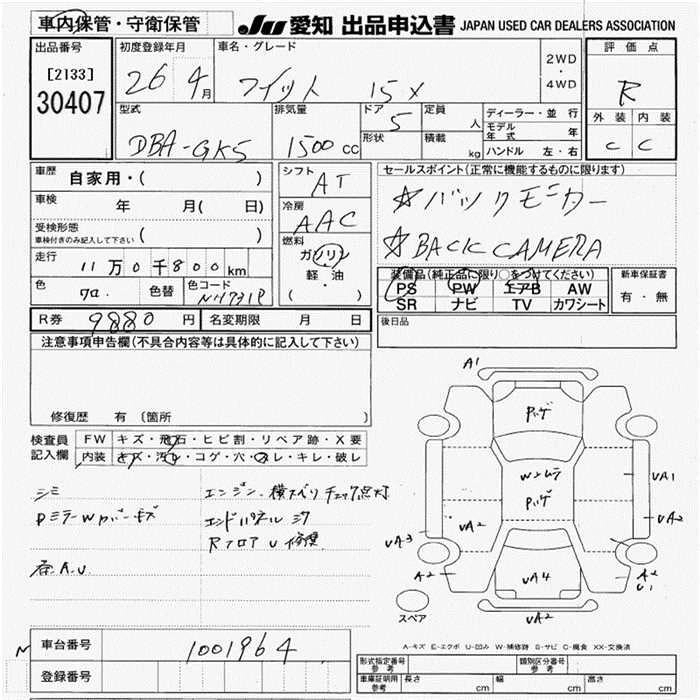 車内保管・守衛保管 JU 愛知 出品申込書 JAPAN USED CAR DEALERS ASSOCIATION
出品番号 [2133] 30407
初度登録年月 26 4月
車名・グレード フィット 15X
2WD・4WD
評価点 R
外装 C 内装 C
型式 DBA-GK5
排気量 1500cc
ドア 5
形状
定員 人
積載 kg
ディーラー・並行
モデル年式 年
ハンドル 左・右
車歴 自家用・( )
車検 年 月( 日)
受検形態 車検付きのみ記入して下さい ( )
走行 11万0千800km
色 クロ 色替 色コード NH731P
シフト AT
冷房 AAC
燃料 ガソリン 軽油 ( ・ )
セールスポイント(正常に機能するものに限ります)
☆バックモニター
☆BACK CAMERA
装備品(純正品に限り○をつけてください)
PS PW エアB AW
SR ナビ TV カワシート
新車保証書 有・無
後日品
R券 9880円 名変期限 月 日
注意事項申告欄(不具合内容等は具体的に記入して下さい)
修復歴 有 (箇所 )
検査員記入欄
FW キズ・飛石・ヒビ割・リペア跡・X要
内装 キズ・汚れ・コゲ・穴・スレ・キレ・破レ
シミ
エンジン、横スベリチェック点灯
PミラーWカバーキズ
エンドパネル
RフロアU修理
A.U
A1
UA1
UA2
UA2
UA3
UA2
A2
UA4
A2
U1
UA2
スペア
A-キズ E-エクボ U-凹み W-補修跡 S-サビ C-腐食 XX-交換済
車台番号 1001964
登録番号
形式指定番号 参考
類別区分番号 参考
車庫証明用 参考 長さ cm 幅 cm 高さ cm